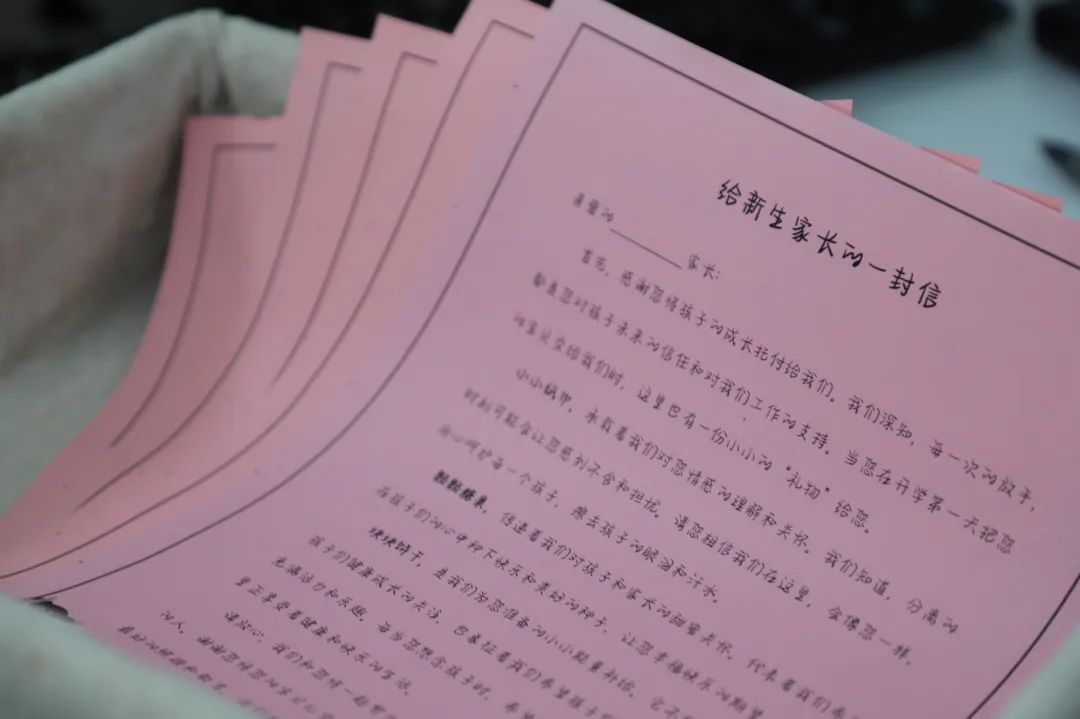 给新生家长的一封信
亲爱的______家长:
首先,感谢您将孩子的成长托付给我们。我们深知,每一次的放手,
都是您对孩子未来的信任和对我们工作的支持。当您在开学第一天把您
的宝贝交给我们时,这里也有一份小小的“礼物”给您。
小小纸巾,承载着我们对您情感的理解和关怀。我们知道,分离的
时刻可能会让您感到不舍和担忧。请您相信我们在这里,会像您一样,
用心呵护每一个孩子,擦去孩子的眼泪和汗水。
颗颗糖果,传递着我们对孩子和家长的甜蜜关怀。代表着我们希
在孩子们的心中种下快乐和美好的种子,让您幸福快乐的期望
块块饼干,是我们为您准备的小小能量补给。它不
孩子们健康成长的关注,包裹着我们希望孩子
充满活力和乐趣。每当您想念孩子时,希望
里正享受着健康和快乐的生活。
请放心,我们和您一
的人。谢谢您